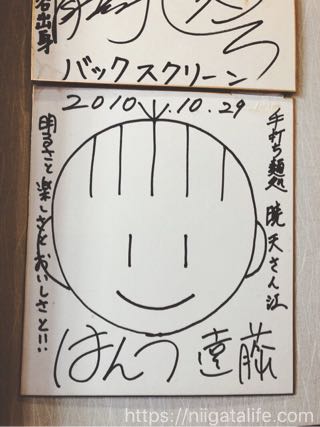 バックスクリーン
2010.10.29
手打ち麺処 暁天さん江
明るさと楽しさとおいしさと!!
はんつ遠藤
https://niigatalife.com